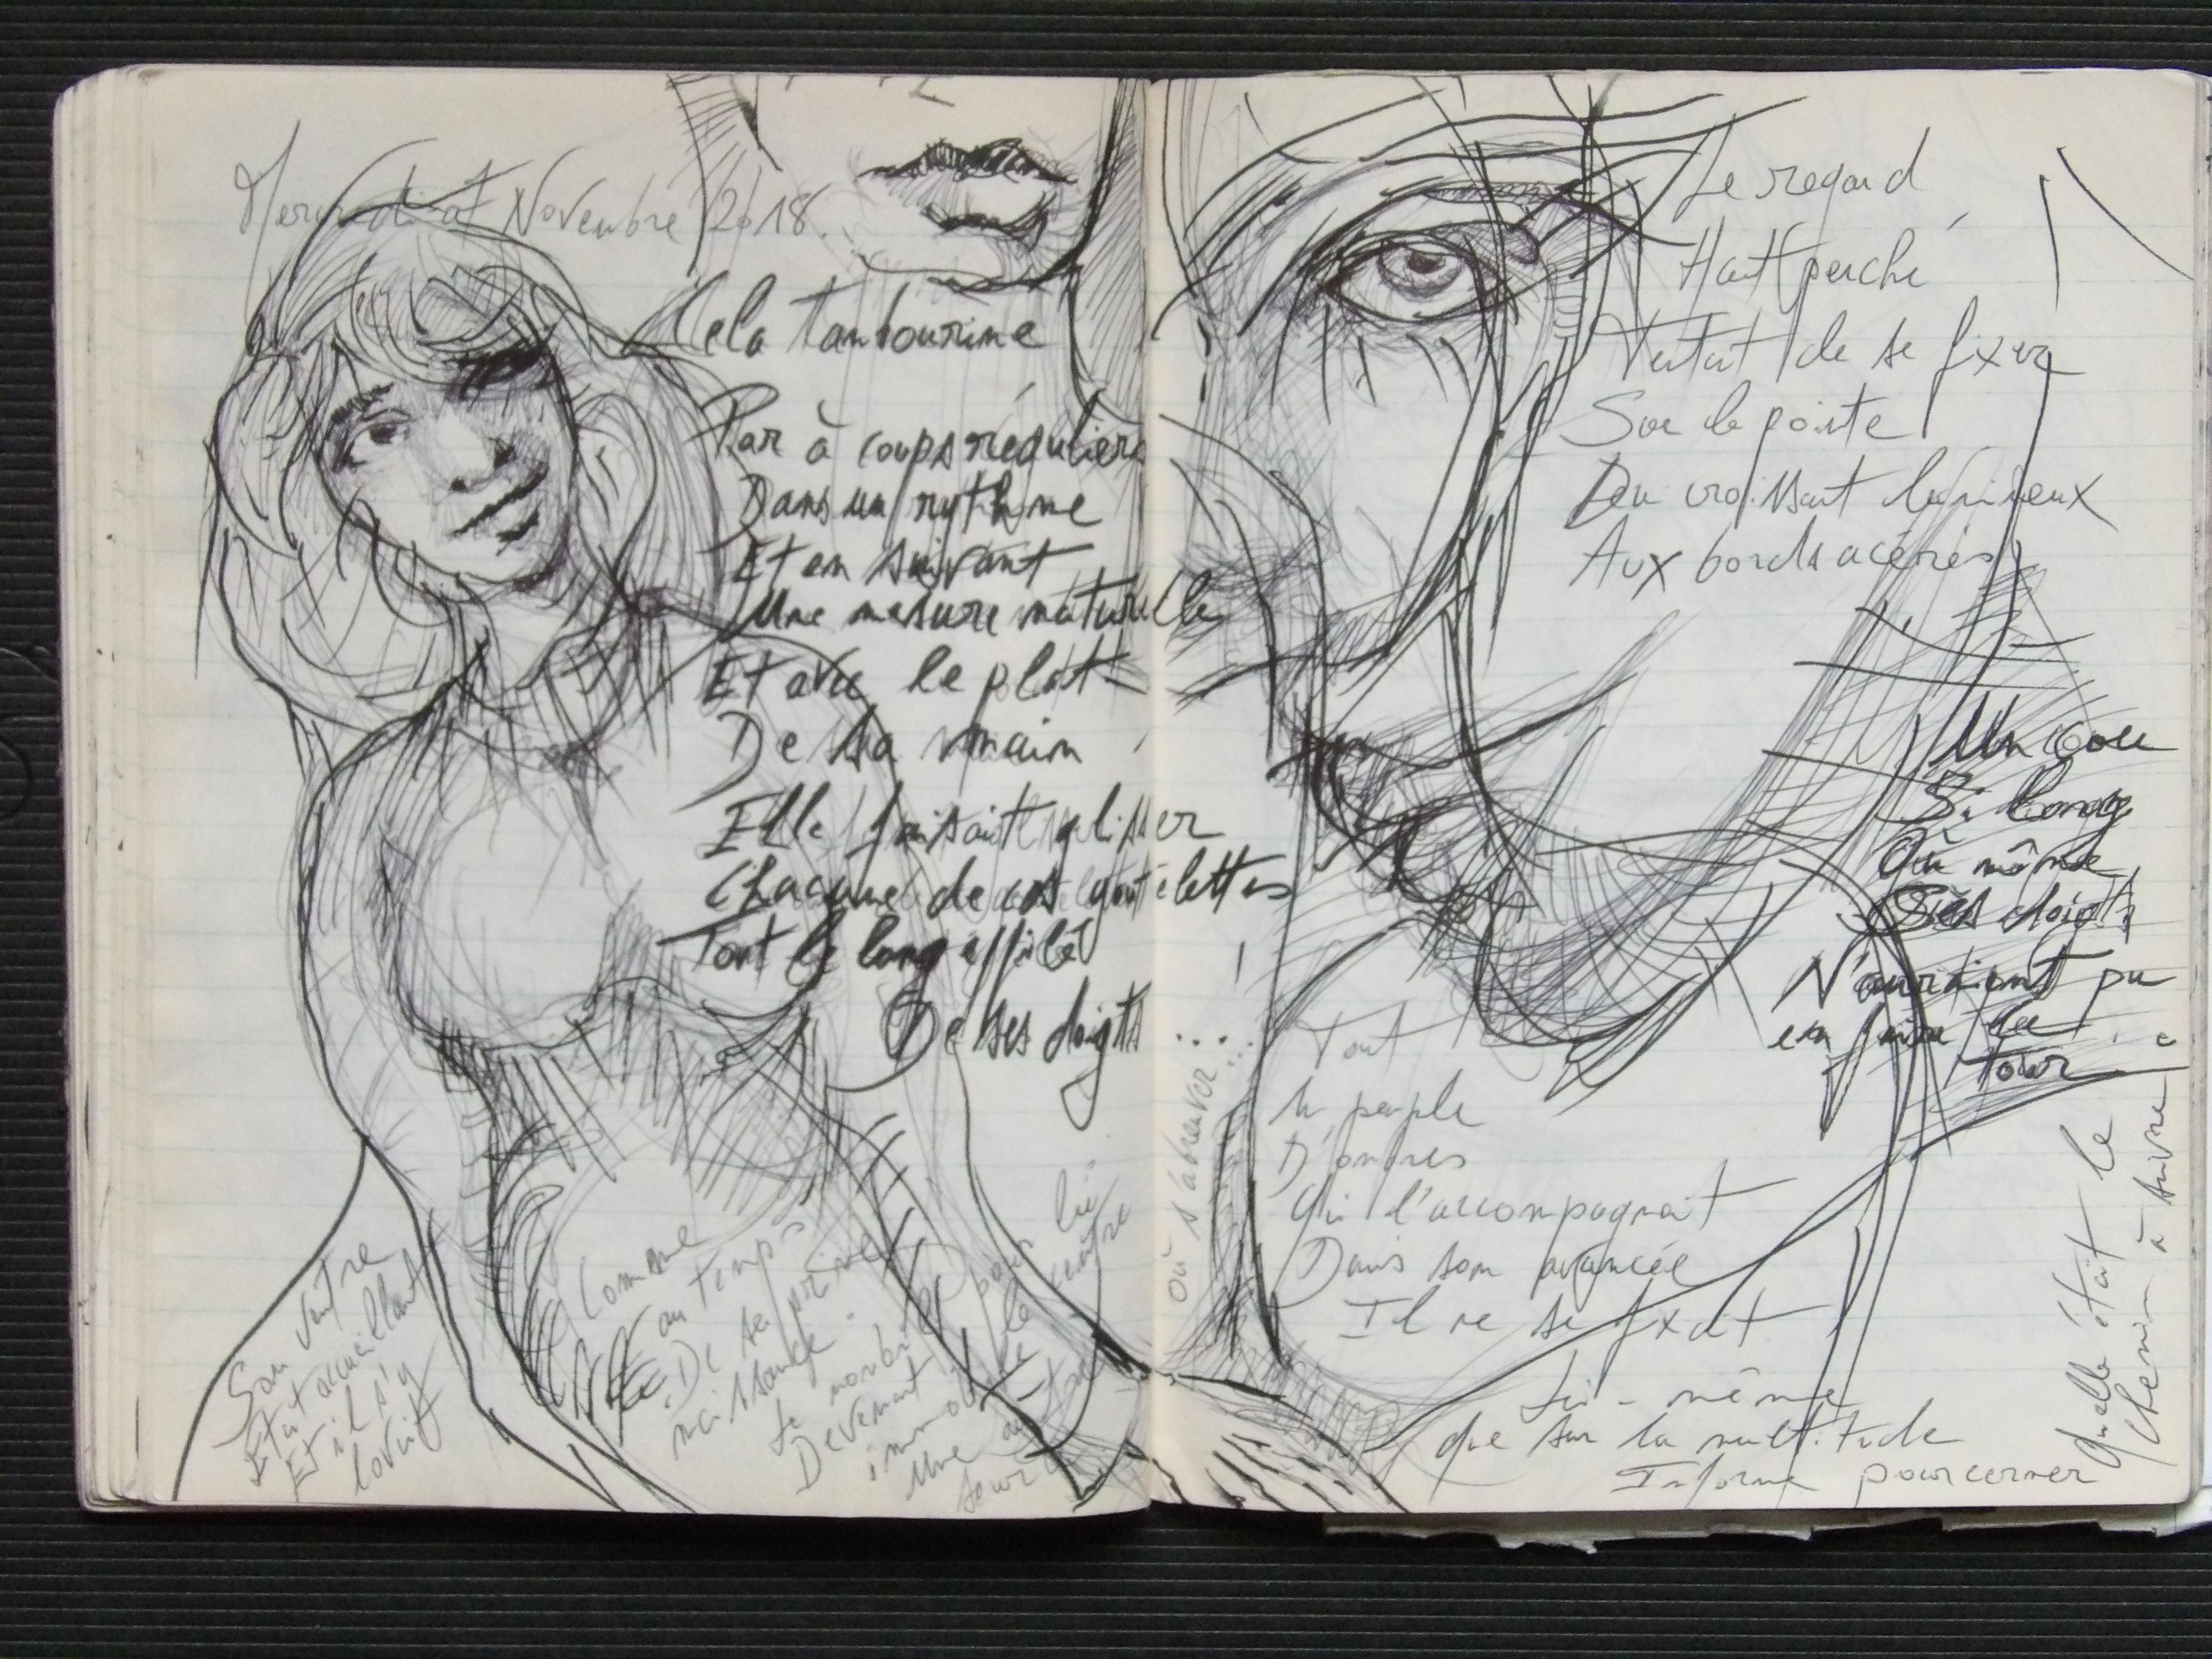 Mercredi Novembre 2018.
Cela tambourine
Par à coups réguliers
Dans un rythme
Et en suivant
Une mesure naturelle
Et avec le plat
De sa main
Elle faisait glisser
Chacune de ces gouttelettes
Tout le long effilé
De ses doigts
Son ventre
Etait accueillant
Et il s'y
lovait
Comme
au temps
De sa prime
naissance.
Le nombril
Devenant
immobile
Une autre
source
où s'abreuver...
Le regard
Haut perché
Tentait de se fixer
Sur la pointe
Du croissant lumineux
Aux bords acérés
Un cou
Si long
Que même
Ses doigts
N'auraient pu
en faire le
tour
Tout
Un peuple
D'ombres
Qui l'accompagnait
Dans son avancée
Il ne se fixait
Lui-même
que sur la multitude
Informe pour cerner
Quelle était le
chemin à suivre